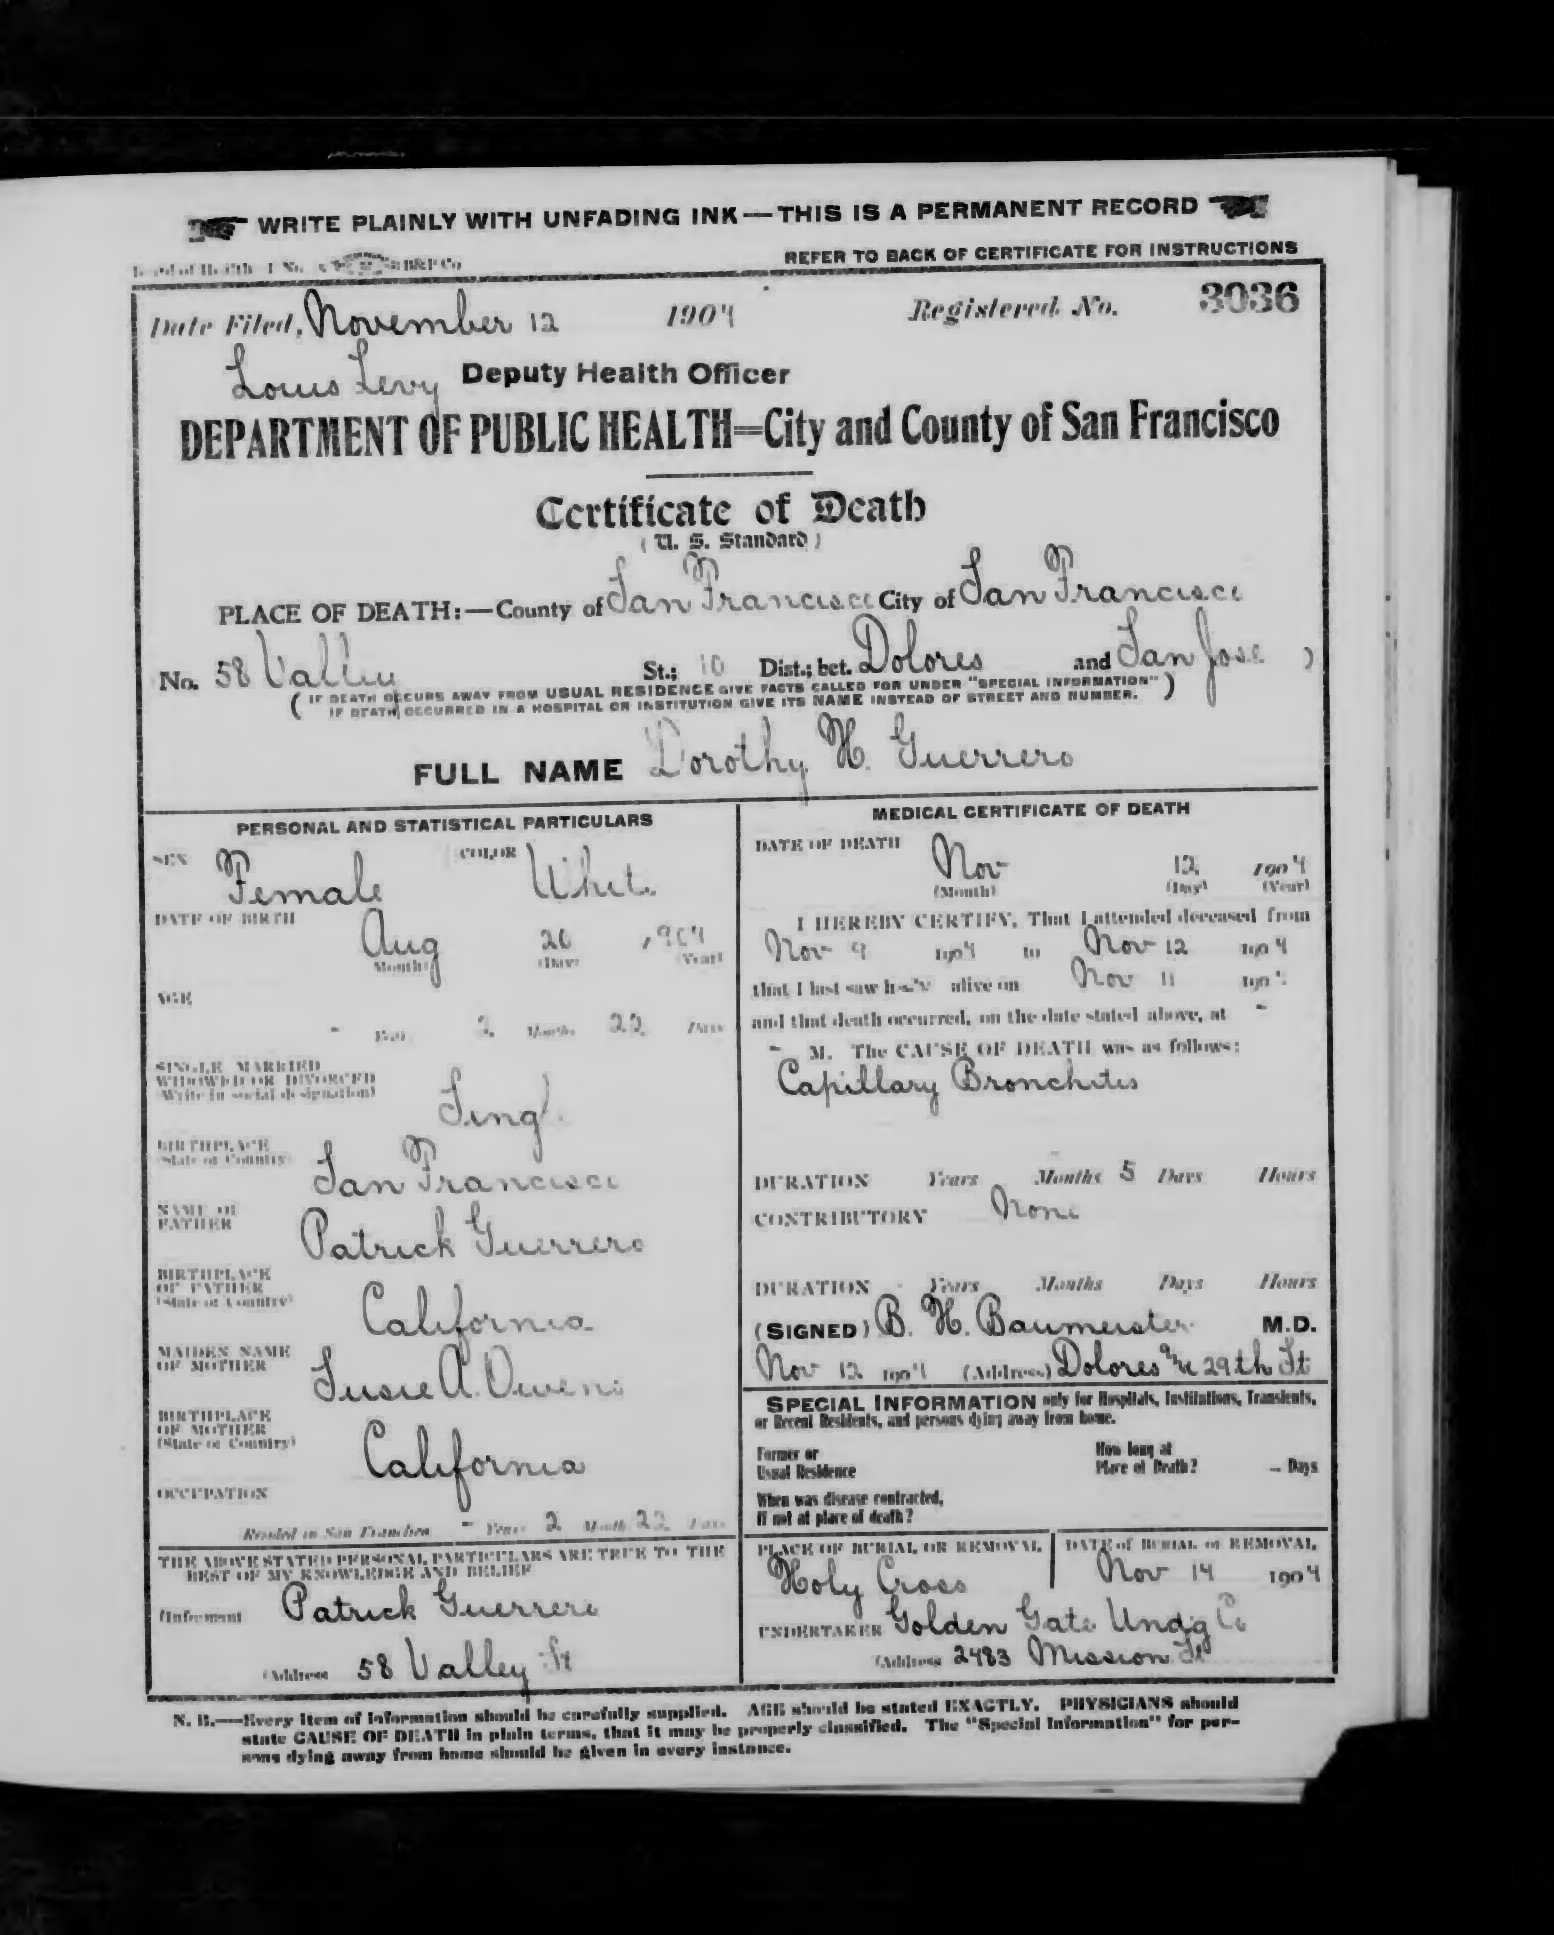 WRITE PLAINLY WITH UNFADING INK — THIS IS A PERMANENT RECORD
REFER TO BACK OF CERTIFICATE FOR INSTRUCTIONS
Date Filed, November 12 1904 Registered No. 3036
Louis Levy Deputy Health Officer
DEPARTMENT OF PUBLIC HEALTH=City and County of San Francisco
Certificate of Death
(U. S. Standard)
PLACE OF DEATH:—County of San Francisco City of San Francisco
No. 58 Valley St.; 10 Dist.; bet. Dolores and San Jose )
( IF DEATH OCCURS AWAY FROM USUAL RESIDENCE GIVE FACTS CALLED FOR UNDER "SPECIAL INFORMATION" )
IF DEATH OCCURRED IN A HOSPITAL OR INSTITUTION GIVE ITS NAME INSTEAD OF STREET AND NUMBER.
FULL NAME Dorothy H. Guerrero
PERSONAL AND STATISTICAL PARTICULARS
SEX Female COLOR White
DATE OF BIRTH
Aug 20 1904
(Month) (Day) (Year)
AGE
- Years 2 Months 22 Days
SINGLE MARRIED
WIDOWED OR DIVORCED
(Write in social designation)
Single
BIRTHPLACE
(State or Country)
San Francisco
NAME OF
FATHER
Patrick Guerrero
BIRTHPLACE
OF FATHER
(State or Country)
California
MAIDEN NAME
OF MOTHER
Susie A. Owens
BIRTHPLACE
OF MOTHER
(State or Country)
California
OCCUPATION
Resided in San Francisco - Years 2 Months 22 Days
THE ABOVE STATED PERSONAL PARTICULARS ARE TRUE TO THE
BEST OF MY KNOWLEDGE AND BELIEF
(Informant Patrick Guerrero
(Address 58 Valley St
MEDICAL CERTIFICATE OF DEATH
DATE OF DEATH
Nov 12 1904
(Month) (Day) (Year)
I HEREBY CERTIFY, That I attended deceased from
Nov 9 1904 to Nov 12 1904
that I last saw her alive on Nov 11 1904
and that death occurred, on the date stated above, at -
- M. The CAUSE OF DEATH was as follows:
Capillary Bronchitis
DURATION Years Months 5 Days Hours
CONTRIBUTORY None
DURATION Years Months Days Hours
(SIGNED) B. H. Baumeister M.D.
Nov 12 1904 (Address) Dolores & 29th St
SPECIAL INFORMATION only for Hospitals, Institutions, Transients,
or Recent Residents, and persons dying away from home.
Former or
Usual Residence
How long at
Place of Death? - Days
When was disease contracted,
If not at place of death?
PLACE OF BURIAL OR REMOVAL
Holy Cross
DATE of BURIAL or REMOVAL
Nov 14 1904
UNDERTAKER Golden Gate Undg Co
(Address 2483 Mission St
N. B.—Every item of information should be carefully supplied. AGE should be stated EXACTLY. PHYSICIANS should
state CAUSE OF DEATH in plain terms, that it may be properly classified. The "Special Information" for per-
sons dying away from home should be given in every instance.